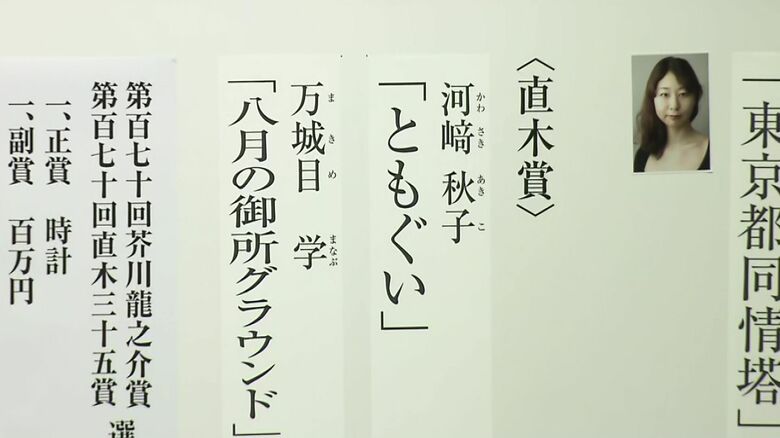 「東京都同情塔」
〈直木賞〉
かわさき あきこ
河﨑 秋子
「ともぐい」
まきめ まなぶ
万城目 学
「八月の御所グラウンド」
第百七十回芥川龍之介賞
第百七十回直木三十五賞
選
一、正賞 時計
一、副賞 百万円